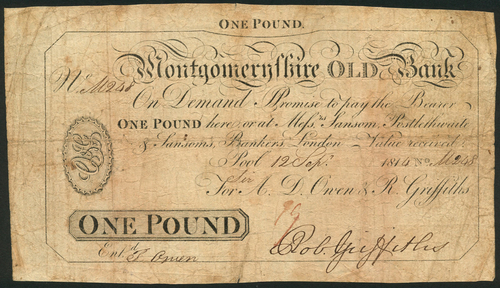 ONE POUND.
Montgomeryshire OLD Bank
No. M248
On Demand I Promise to pay the Bearer
ONE POUND here, or at Messrs. Sansom, Postlethwaite
& Sansoms, Bankers, London Value received
Pool 12 Sepr. 1814 No. M248
For A. D. Owen & R. Griffiths
ONE POUND
Robt. Griffithes
Entd. D. Owen